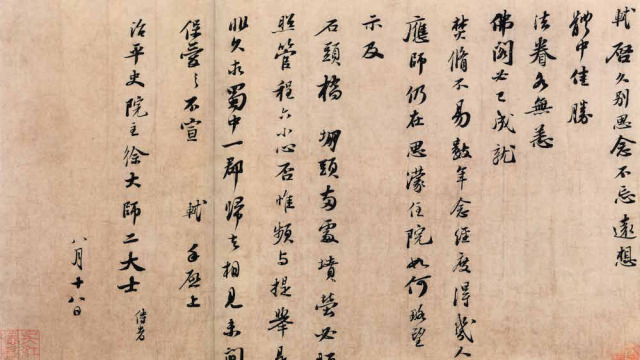 軾啓久別思念不忘遠想
體中佳勝
法眷各無恙
佛閣必已成就
焚脩不易數年念經度得幾人
應師仍在思濛住院如何略望
示及
石頭橋堋頭兩處墳塋必
照管程六小心否惟頻与提舉
非久求蜀中一郡歸去相見未間
保愛之不宣 軾手啓上
治平史院主徐大師二大士 侍者
八月十八日